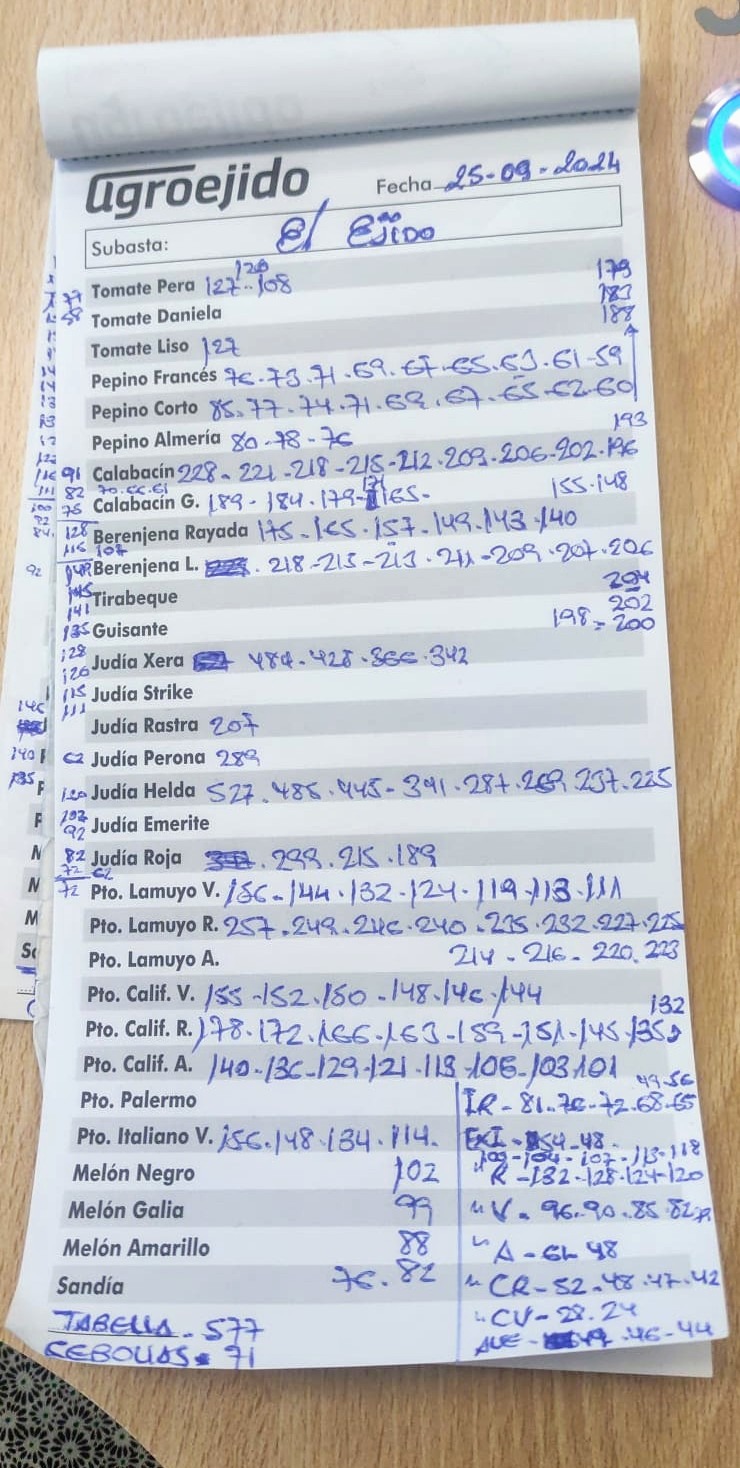 agroejido
Fecha 25-09-2024
Subasta: El Ejido
126 179
Tomate Pera 127-108
183
Tomate Daniela 188
Tomate Liso 127
Pepino Francés 76.73.71.69.67.65.63.61-59
Pepino Corto 85.77.74.71.69.67-65-62-60
Pepino Almería 80-78-76
193
Calabacín 228-221-218-215-212.209.206-202.196
70.66.61 171
Calabacín G. 189-184.179-165- 155.148
Berenjena Rayada 175-165.157.149.143.140
107
Berenjena L. 218-215-213.211-209.207.206
Tirabeque 204
202
Guisante 198-200
Judía Xera 484-428.366.342
Judía Strike
Judía Rastra 207
Judía Perona 289
Judía Helda 527.485.445-391.287.269.237.225
Judía Emerite
Judía Roja 299.215.189
Pto. Lamuyo V. 156-144.132-124-119-113-111
Pto. Lamuyo R. 257.249.246.240.235.232.227.225
Pto. Lamuyo A. 214-216-220.223
Pto. Calif. V. 155-152.150-148.146-144
132
Pto. Calif. R. 178.172.166-163-159-151-145-135
Pto. Calif. A. 140-136-129-121-113-106-103-101
49-56
Pto. Palermo IR-81-76-72.68-65
Pto. Italiano V. 156.148.134.114. EXI-54-48-
100-104-107-113-118
Melón Negro 102 " R-132-128-124-120
Melón Galia 99 " V-96.90.85.82
Melón Amarillo 88 " A-61-48
Sandía 76.82 " CR-52-48.47.42
" CV-28.24
TABELLA-577
ALE- 49.46-44
CEBOLLAS-71